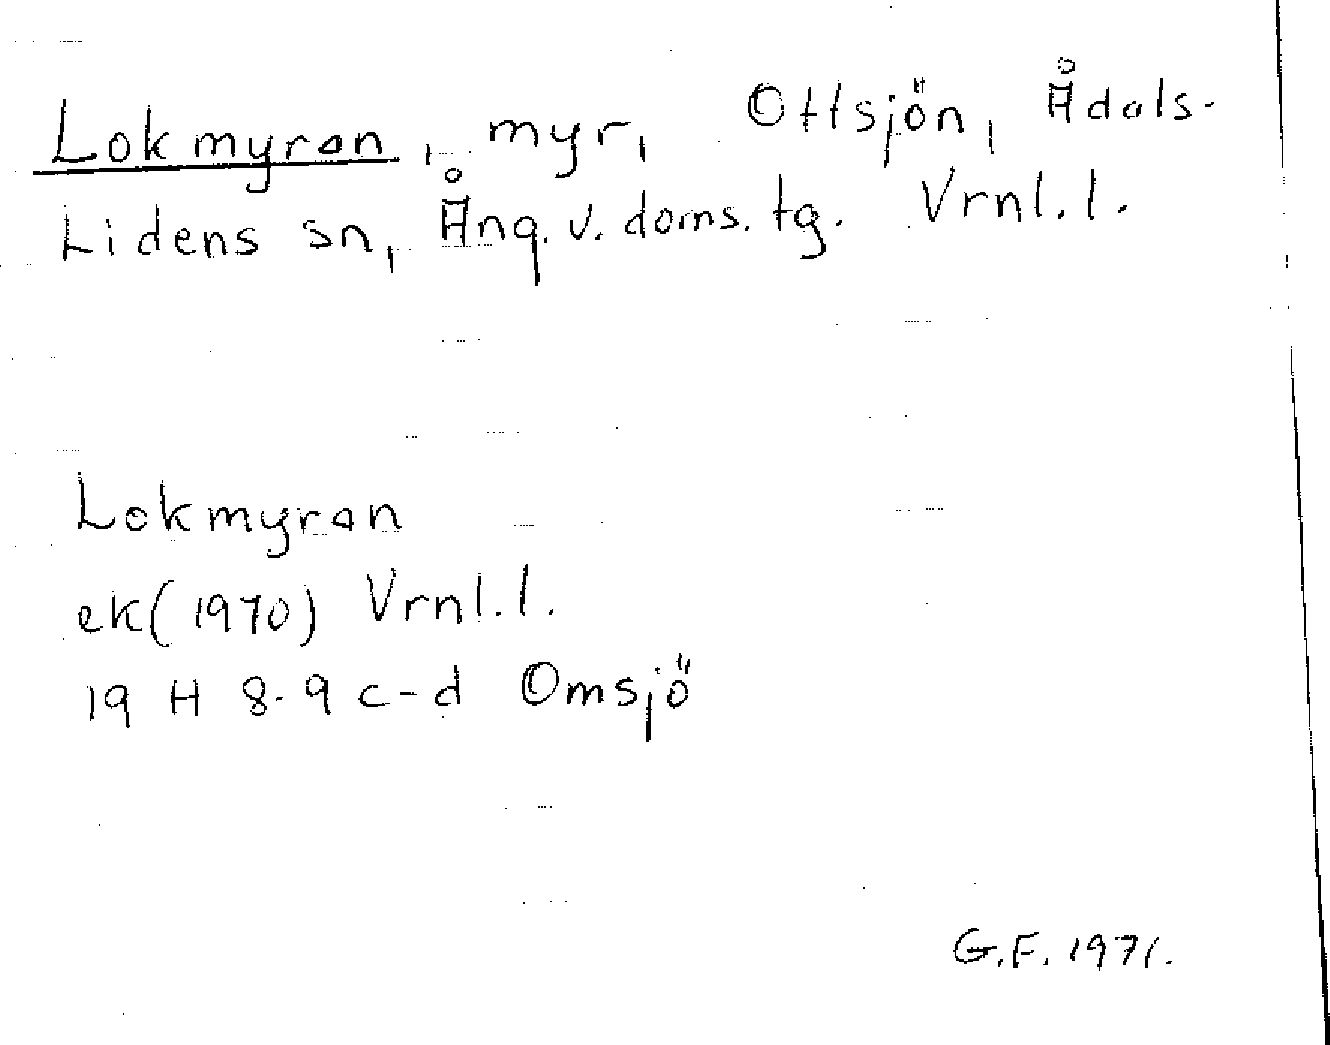 Lokmyran, myr, Ottsjön, Ådals-
Lidens sn, Ång. v. doms. tg. Vrnl. l.
Lokmyran
ek (1970) Vrnl. l.
19 H 8-9 c-d Omsjö
G.F. 1971.